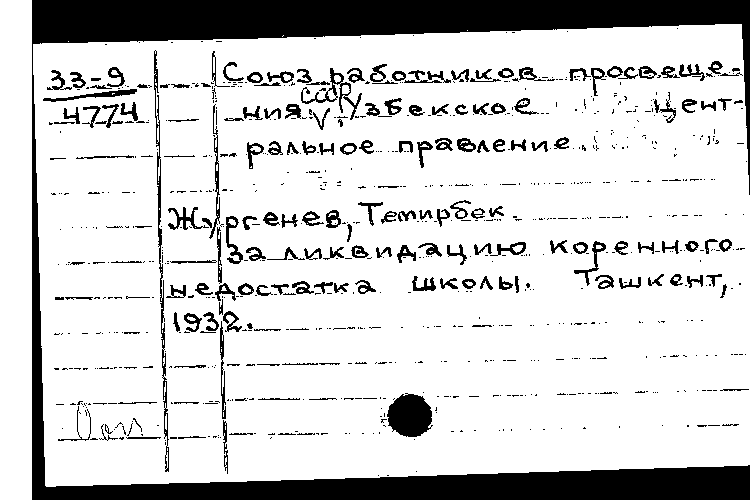 33-9
4774
Союз работников просвеще-
ния СССР. Узбекское цент-
ральное правление.
Жургенев, Темирбек.
За ликвидацию коренного
недостатка школы. Ташкент,
1932.